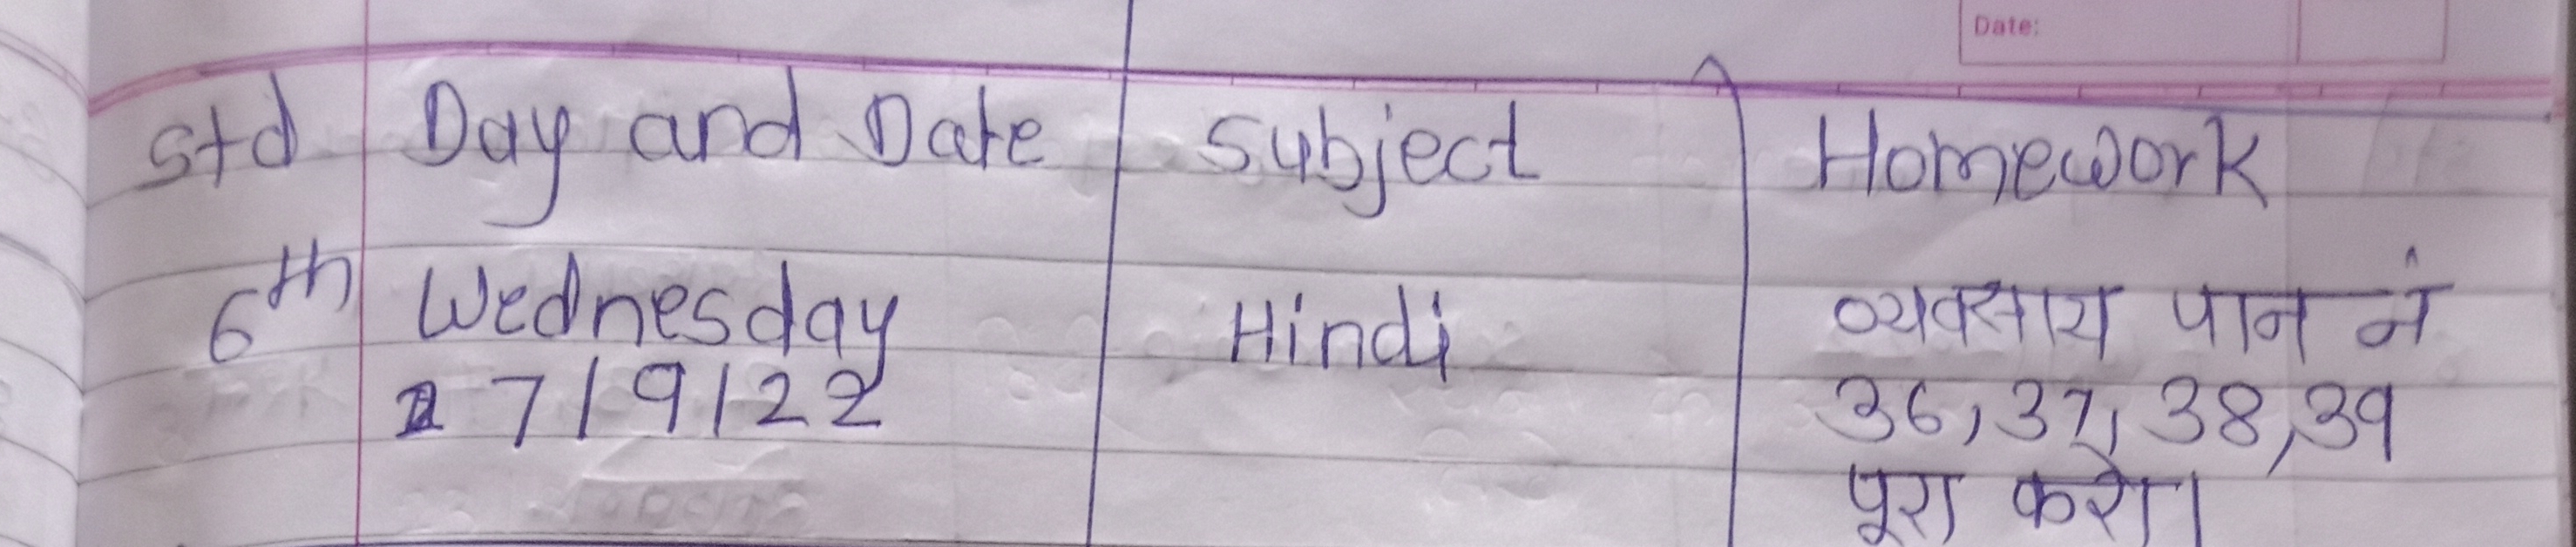 Date:
Std Day and Date Subject Homework
6th Wednesday Hindi व्यवसाय पान नं
7/9/22 36, 37, 38, 39
पूरा करो।